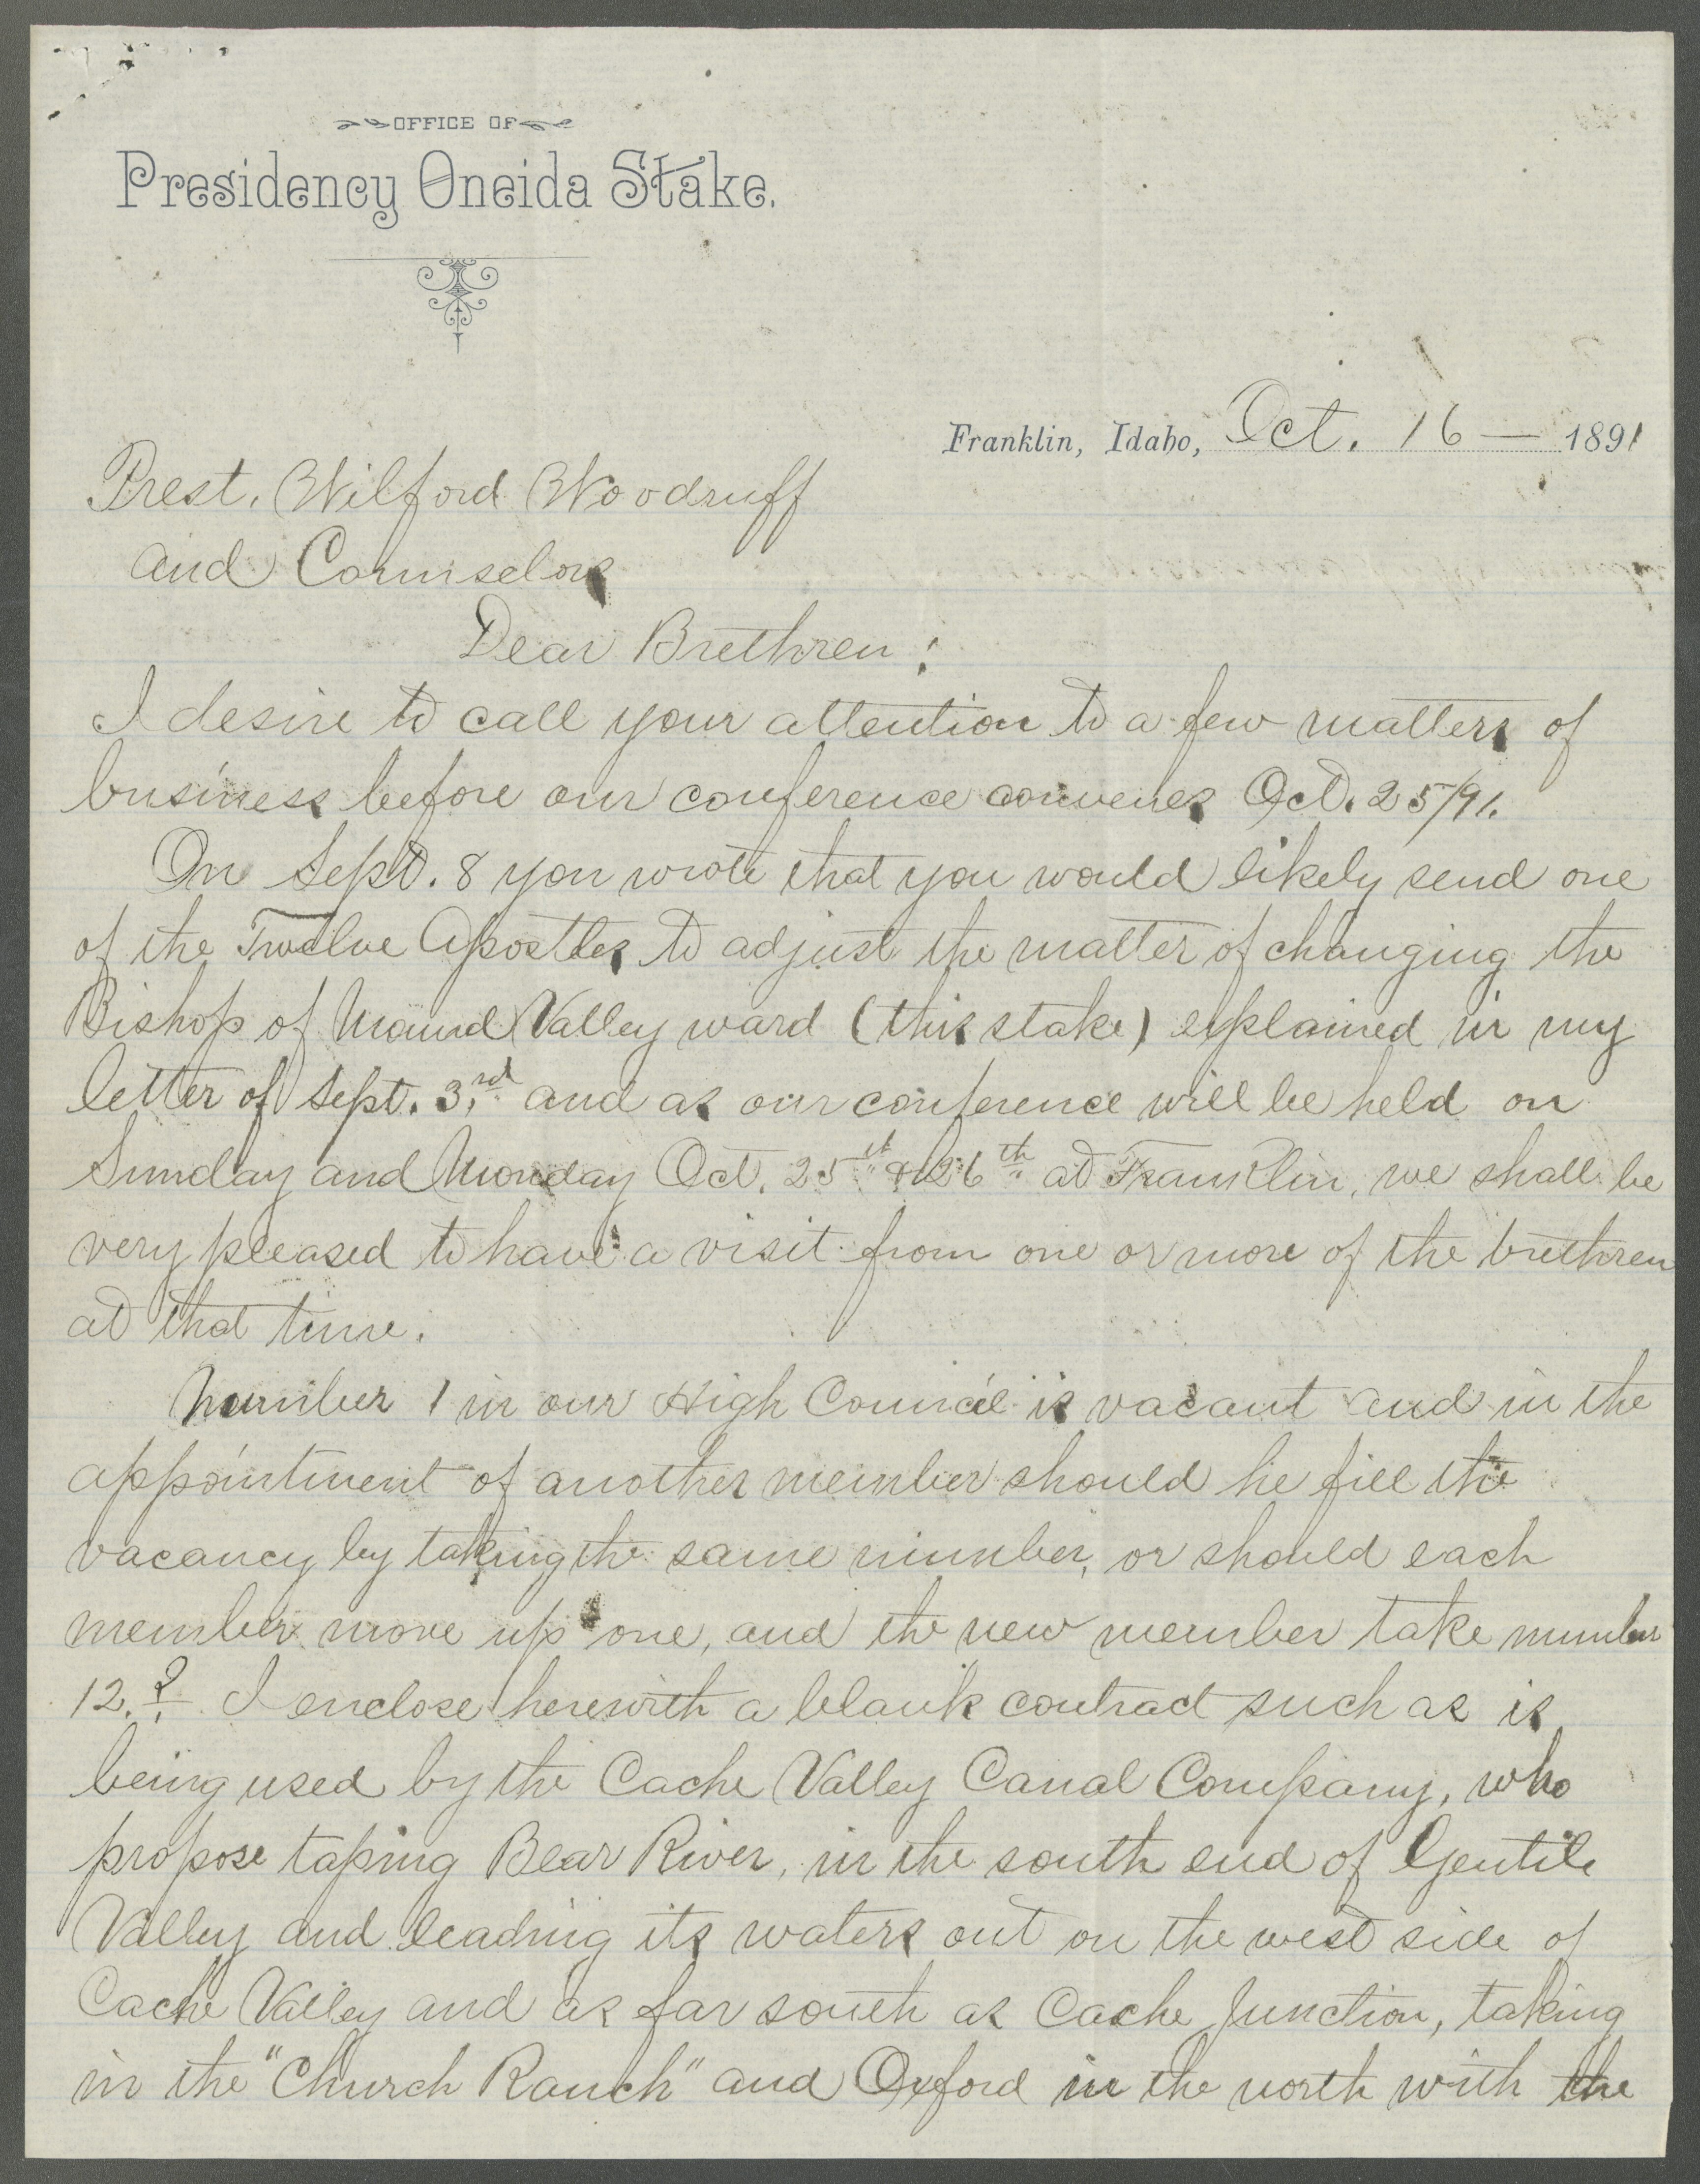 OFFICE OF
Presidency Oneida Stake.
Franklin, Idaho, Oct. 16 — 1891
Prest. Wilford Woodruff
and Counselors
Dear Brethren:
I desire to call your attention to a few matters of
business before our conference convenes Oct. 25/91.
On Sept. 8 you wrote that you would likely send one
of the Twelve Apostles to adjust the matter of changing the
Bishop of Maund Valley ward (this stake) explained in my
letter of Sept. 3rd. and as our conference will be held on
Sunday and Monday Oct. 25th & 26th at Franklin, we shall be
very pleased to have a visit from one or more of the brethren
at that time.
Number 1 in our High Council is vacant and in the
appointment of another member should he fill the
vacancy by taking the same number, or should each
member move up one, and the new member take number
12.? I enclose herewith a blank contract such as is
being used by the Cache Valley Canal Company, who
propose taping Bear River, in the south end of Gentile
Valley and leading its waters out on the west side of
Cache Valley and as far south as Cache Junction, taking
in the "Church Ranch" and Oxford in the north with the